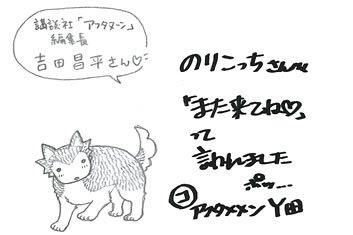 講談社「アフタヌーン」
編集長
吉田昌平さん♡
のりこっちさん〜
「また来てね♡」
って
言われました
ポッ…
アフタヌメン Y田